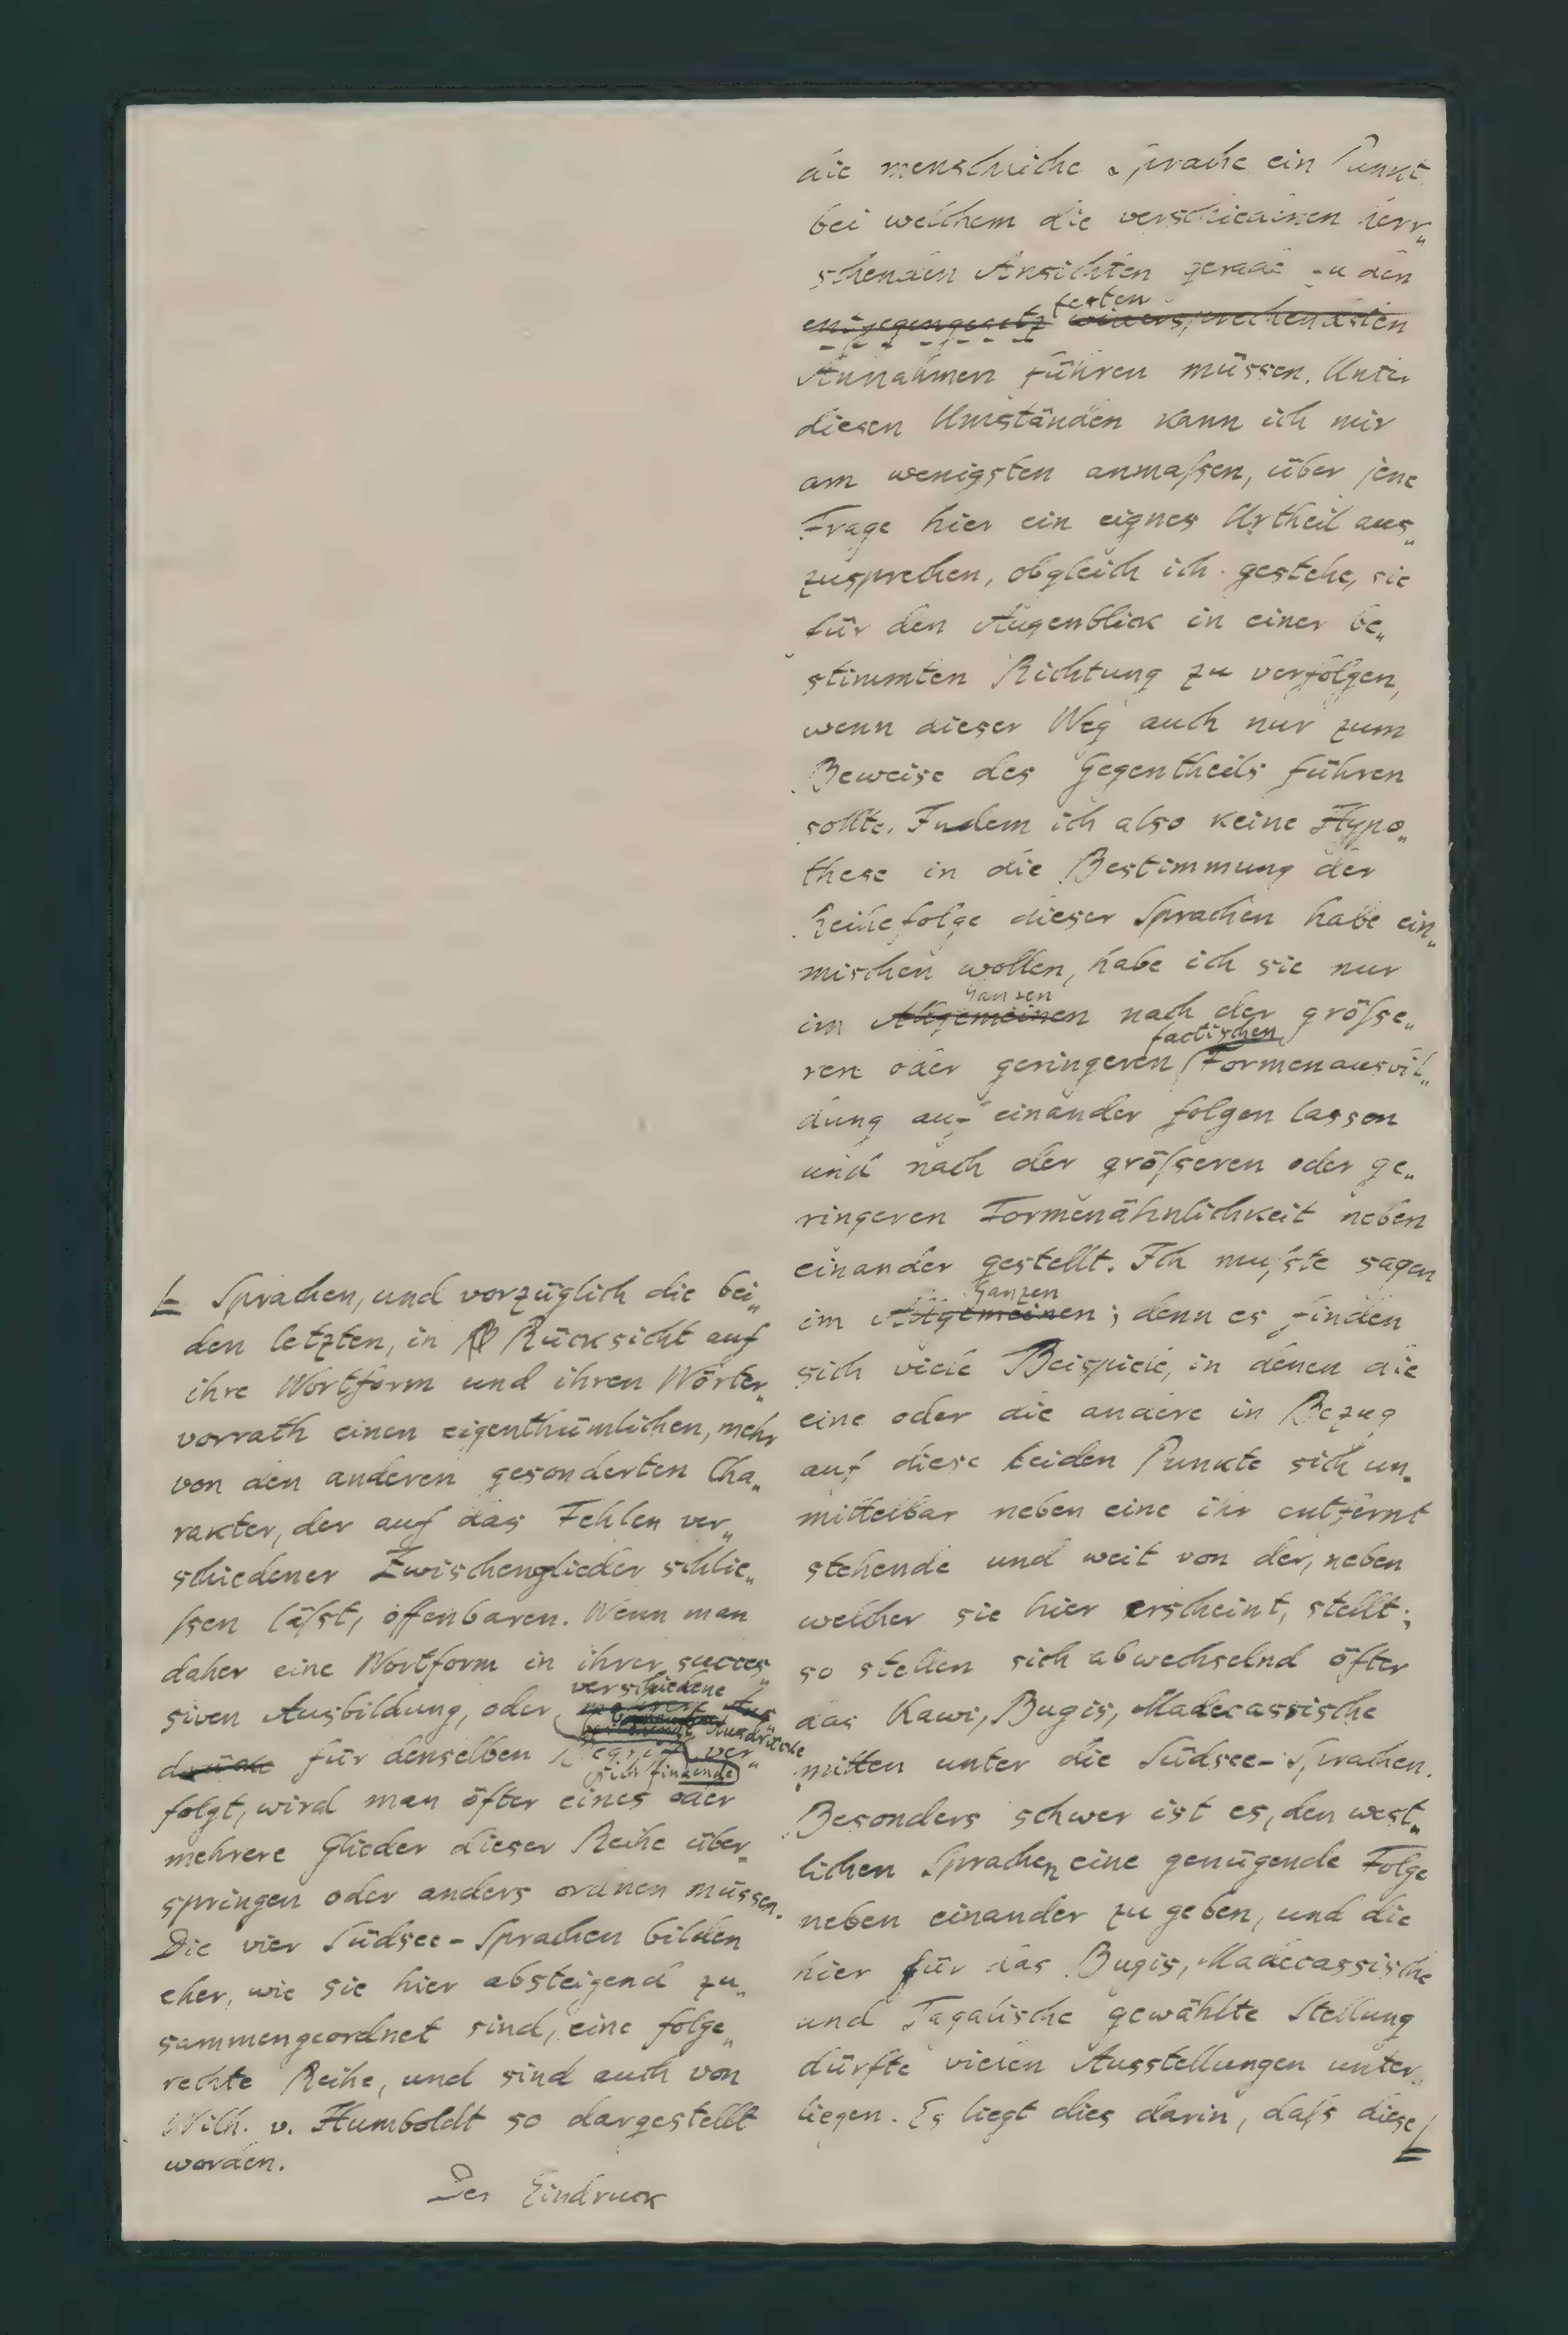 die menschliche Sprache ein Punkt
bei welchem die verschiedenen herr„
schenden Ansichten gerade zu den
festen
entgegengesetz widersprechendsten
Annahmen führen müssen. Unter
diesen Umständen kann ich mir
am wenigsten anmaſsen, über jene
Frage hier ein eignes Urtheil aus„
zusprechen, obgleich ich gestehe, sie
für den Augenblick in einer be„
stimmten Richtung zu verfolgen,
wenn dieser Weg auch nur zum
Beweise des Gegentheils führen
sollte. Indem ich also keine Hypo„
these in die Bestimmung der
Reihefolge dieser Sprachen habe ein„
mischen wollen, habe ich sie nur
Ganzen
im Allgemeinen nach der gröſse„
factischen
ren oder geringeren Formenausbil„
dung auf einander folgen lassen
und nach der gröſseren oder ge„
ringeren Formenähnlichkeit neben
einander gestellt. Ich muſste sagen
Ganzen
im Allgemeinen; denn es finden
sich viele Beispiele, in denen die
eine oder die andere in Bezug
auf diese beiden Punkte sich un„
mittelbar neben eine ihr entfernt
stehende und weit von der, neben
welcher sie hier erscheint, stellt;
so stellen sich abwechselnd öfter
das Kawi, Bugis, Madecassische
mitten unter die Südsee-Sprachen.
Besonders schwer ist es, den west„
lichen Sprachen eine genügende Folge
neben einander zu geben, und die
hier für das Bugis, Madecassische
und Tagalische gewählte Stellung
dürfte vielen Ausstellungen unter„
liegen. Es liegt dies darin, daſs diese
Sprachen, und vorzüglich die bei„
den letzten, in Rücksicht auf
ihre Wortform und ihren Wörter„
vorrath einen eigenthümlichen, mehr
von den anderen gesonderten Cha„
rakter, der auf das Fehlen ver„
schiedener Zwischenglieder schlie„
ſsen läſst, offenbaren. Wenn man
daher eine Wortform in ihrer succes„
verschiedene
siven Ausbildung, oder mehrere Aus„
Ausdrücke
drücke für denselben Begriff ver„
sich findende
folgt, wird man öfter eines oder
mehrere Glieder dieser Reihe über„
springen oder anders ordnen müssen.
Die vier Südsee-Sprachen bilden
eher, wie sie hier absteigend zu„
sammengeordnet sind, eine folge„
rechte Reihe, und sind auch von
Wilh. v. Humboldt so dargestellt
worden.
Der Eindruck